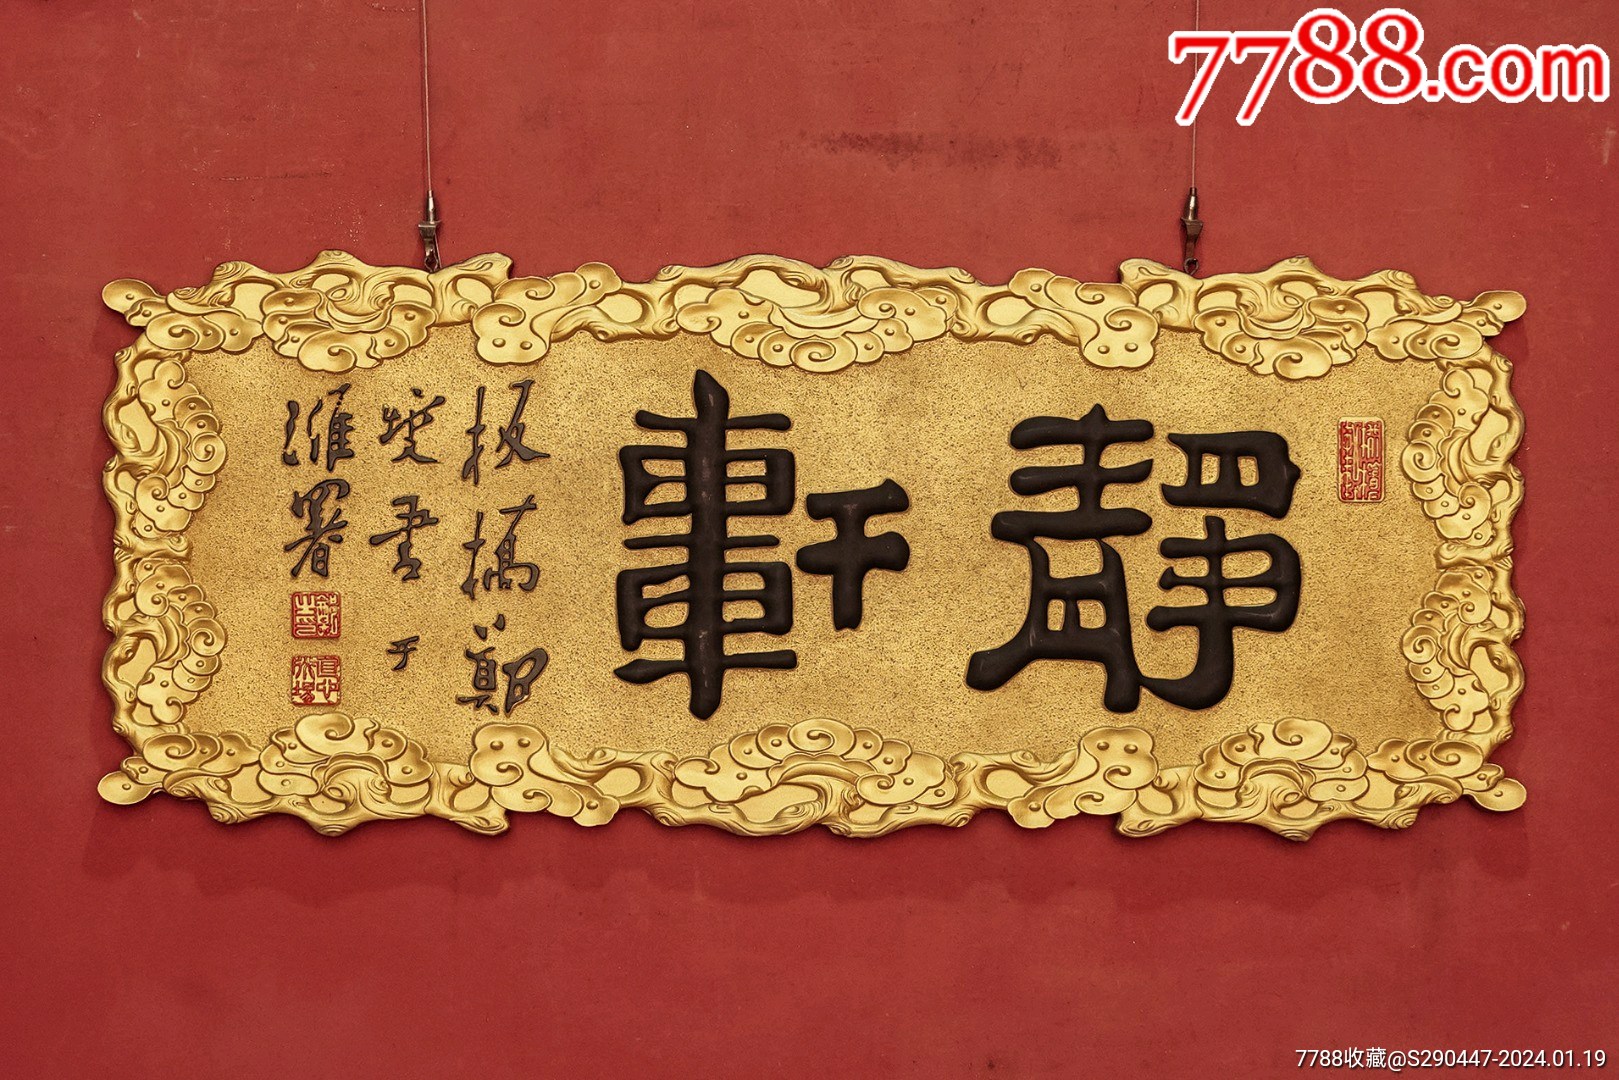 7788.com
靜軒
板橋鄭
燮書于
濰署
7788收藏@S290447-2024.01.19